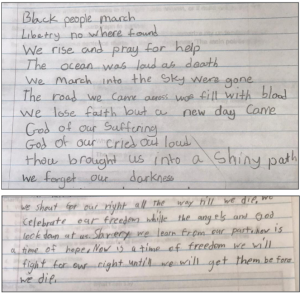 Black people march
Liberty no where found
We rise and pray for help
The ocean was loud as death
We March into the sky were gone
The road we came across was fill with blood
we lose faith but a new day came
God of our Suffering
God of our cried out loud
thou brought us into a shiny path
we forget our darkness
we shout for our right all the way till we die, we
celebrate our freedom while the angels and God
look down at us. we learn from our past. Now is
a time of hope, Now is a time of freedom we will
fight for our right until we will get them before
we die.